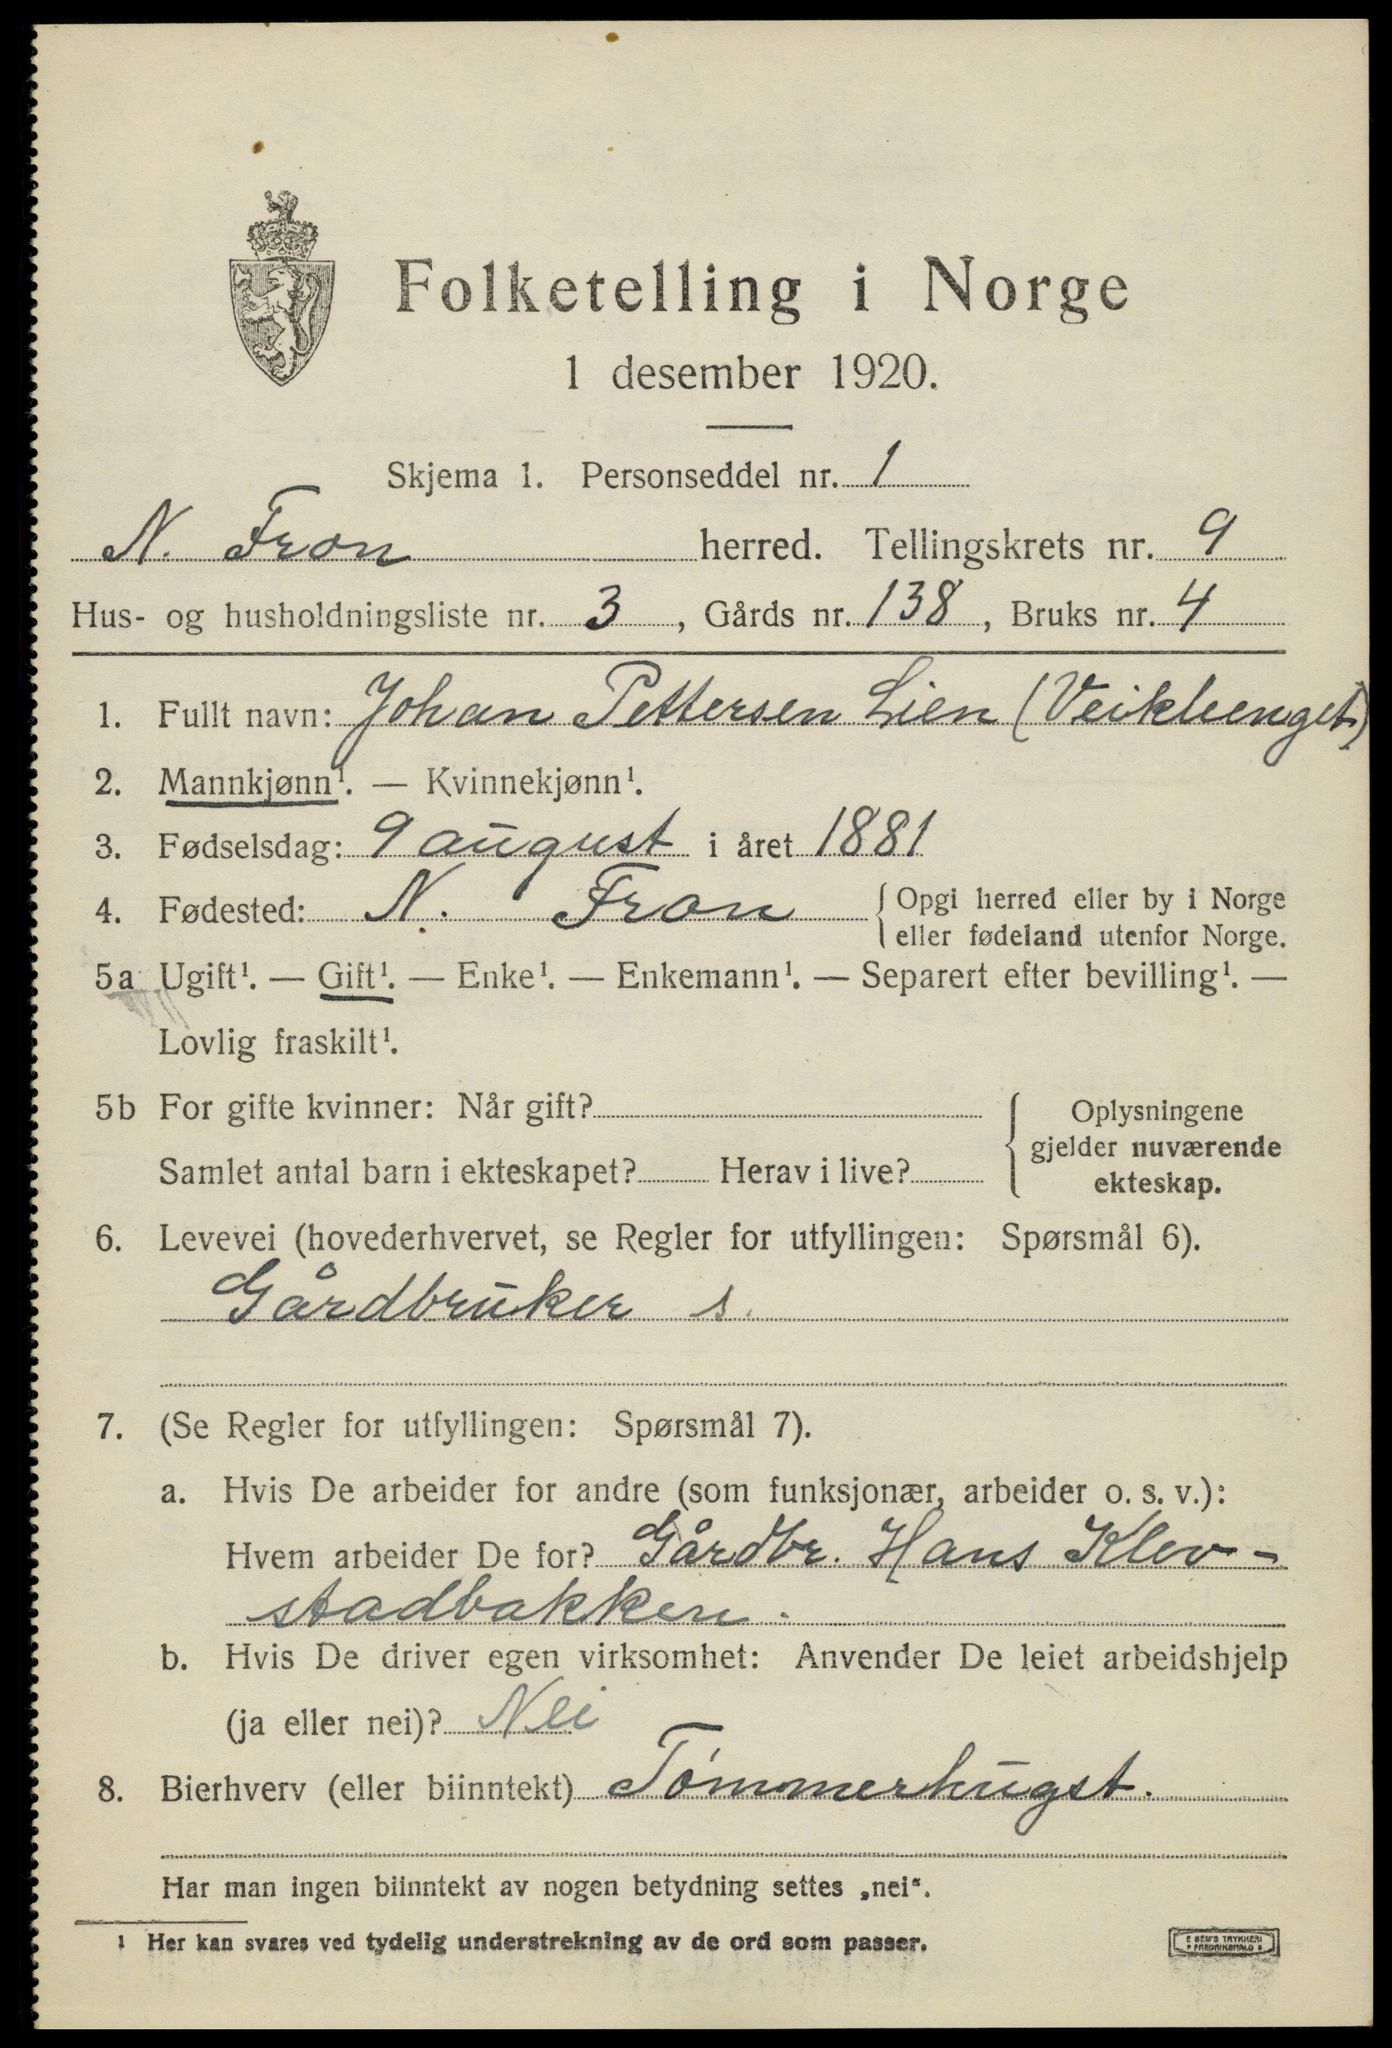 Folketelling i Norge
1 desember 1920.
Skjema 1. Personseddel nr. 1
N. Fron herred. Tellingskrets nr. 9
Hus- og husholdningsliste nr. 3, Gårds nr. 138, Bruks nr. 4
1. Fullt navn: Johan Pettersen Lien (Veiklienget)
2. Mannkjønn¹. — Kvinnekjønn¹.
3. Fødselsdag: 9 august i året 1881
4. Fødested: N. Fron { Opgi herred eller by i Norge
eller fødeland utenfor Norge.
5a Ugift¹. — Gift¹. — Enke¹. — Enkemann¹. — Separert efter bevilling¹. —
Lovlig fraskilt¹.
5b For gifte kvinner: Når gift? { Oplysningene
gjelder nuværende
Samlet antal barn i ekteskapet? Herav i live? ekteskap.
6. Levevei (hovederhvervet, se Regler for utfyllingen: Spørsmål 6).
Gårdbruker s.
7. (Se Regler for utfyllingen: Spørsmål 7).
a. Hvis De arbeider for andre (som funksjonær, arbeider o. s. v.):
Hvem arbeider De for? Gårdbr. Hans Klev-
stadbakken.
b. Hvis De driver egen virksomhet: Anvender De leiet arbeidshjelp
(ja eller nei)? Nei
8. Bierhverv (eller biinntekt) Tømmerhugst.
Har man ingen biinntekt av nogen betydning settes „nei“.
1 Her kan svares ved tydelig understrekning av de ord som passer.
E SEM'S TRYKKERI
FREDRIKSHALD